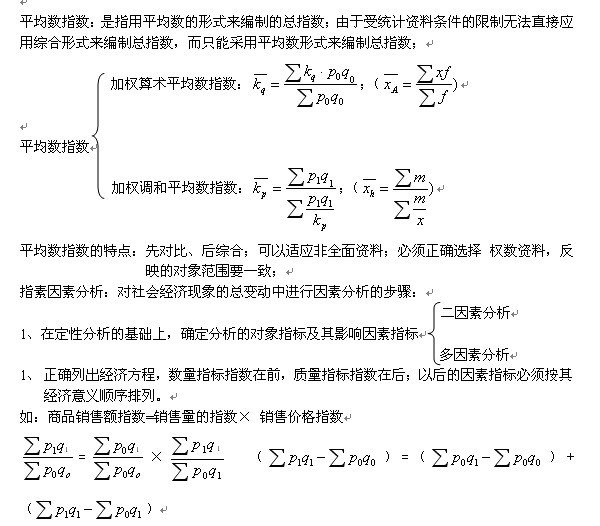 平均数指数：是指用平均数的形式来编制的总指数；由于受统计资料条件的限制无法直接应
用综合形式来编制总指数，而只能采用平均数形式来编制总指数；
加权算术平均数指数： k̄q = ∑kq·p0q0 / ∑p0q0；（ x̄A = ∑xf / ∑f )
平均数指数
加权调和平均数指数： k̄p = ∑p1q1 / ∑(p1q1 / kp)；（ x̄h = ∑m / ∑(m / x) )
平均数指数的特点：先对比、后综合；可以适应非全面资料；必须正确选择 权数资料，反
映的对象范围要一致；
指素因素分析：对社会经济现象的总变动中进行因素分析的步骤：
二因素分析
1、在定性分析的基础上，确定分析的对象指标及其影响因素指标
多因素分析
1、 正确列出经济方程，数量指标指数在前，质量指标指数在后；以后的因素指标必须按其
经济意义顺序排列。
如：商品销售额指数=销售量的指数× 销售价格指数
∑p1q1 / ∑p0qo = ∑p0q1 / ∑p0qo × ∑p1q1 / ∑p0q1 （ ∑p1q1－∑p0q0 ）=（ ∑p0q1－∑p0q0 ）+
（∑p1q1－∑p0q1）